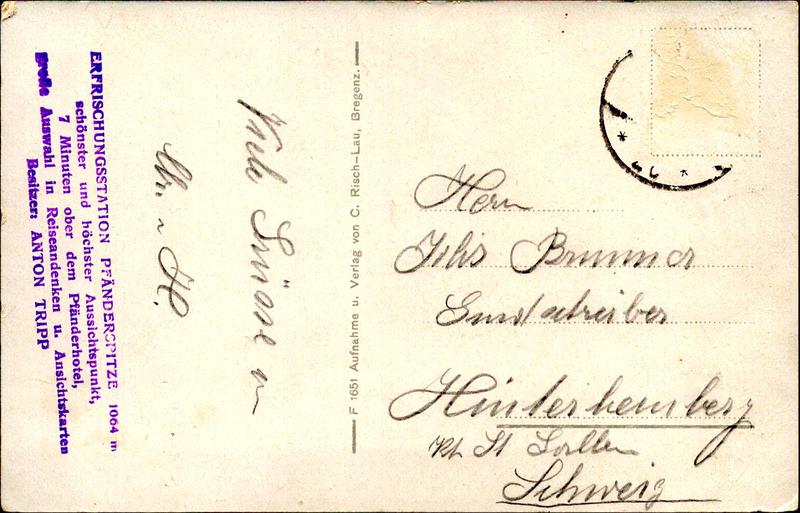 ERFRISCHUNGSSTATION PFÄNDERSPITZE 1064 m
schönster und höchster Aussichtspunkt,
7 Minuten ober dem Pfänderhotel,
große Auswahl in Reiseandenken u. Ansichtskarten
Besitzer: ANTON TRIPP
Viele Grüsse
F 1651 Aufnahme u. Verlag von C. Risch-Lau, Bregenz.
Herrn
Brunner
Hinterhemberg
Kt St Gallen
Schweiz